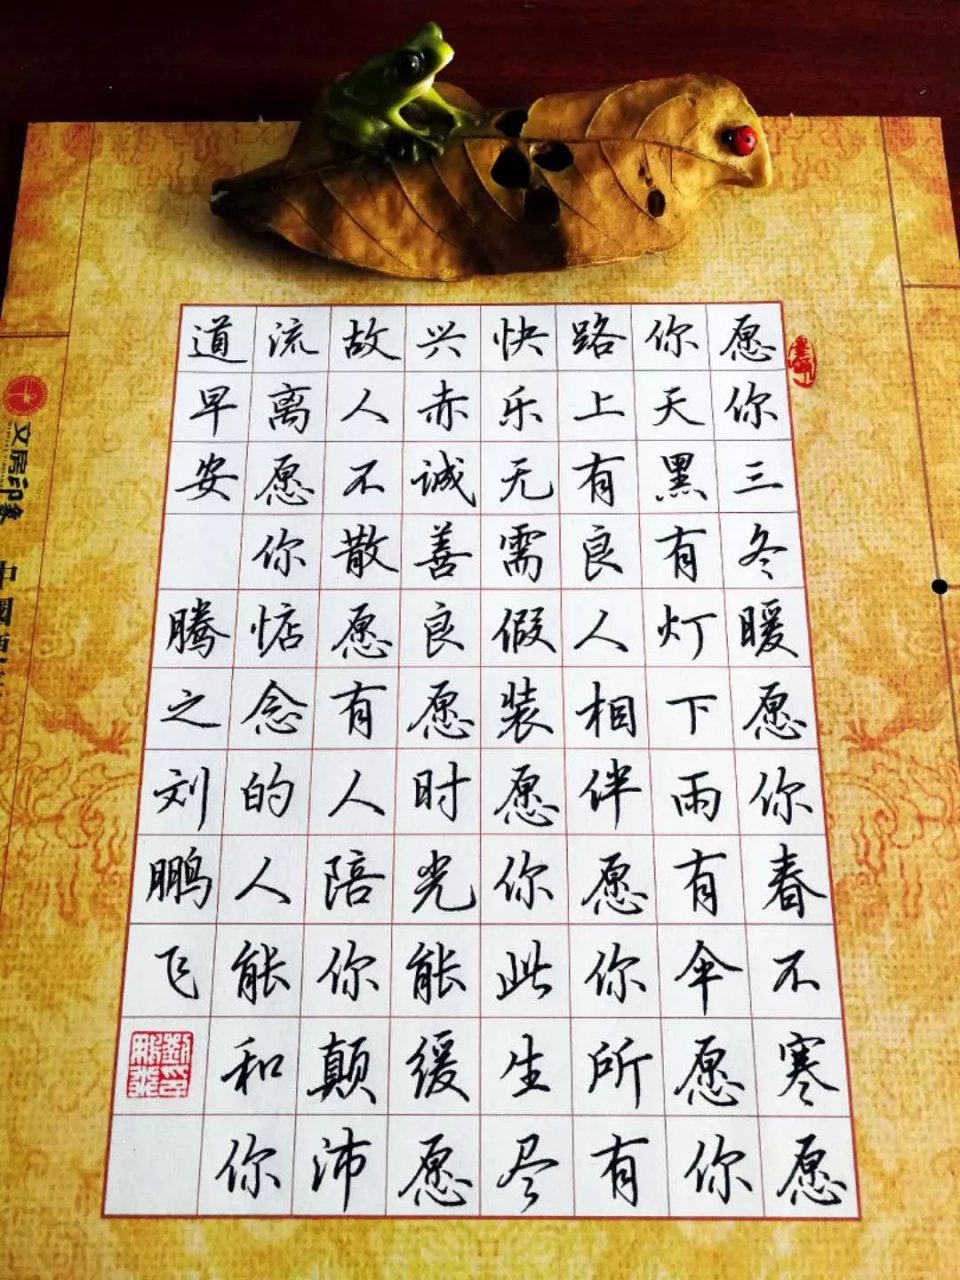 愿你三冬暖愿你春不寒愿
你天黑有灯下雨有伞愿你
路上有良人相伴愿你所有
快乐无需假装愿你此生尽
兴赤诚善良愿时光能缓愿
故人不散愿有人陪你颠沛
流离愿你惦念的人能和你
道早安
腾之刘鹏飞
文房印象
中國